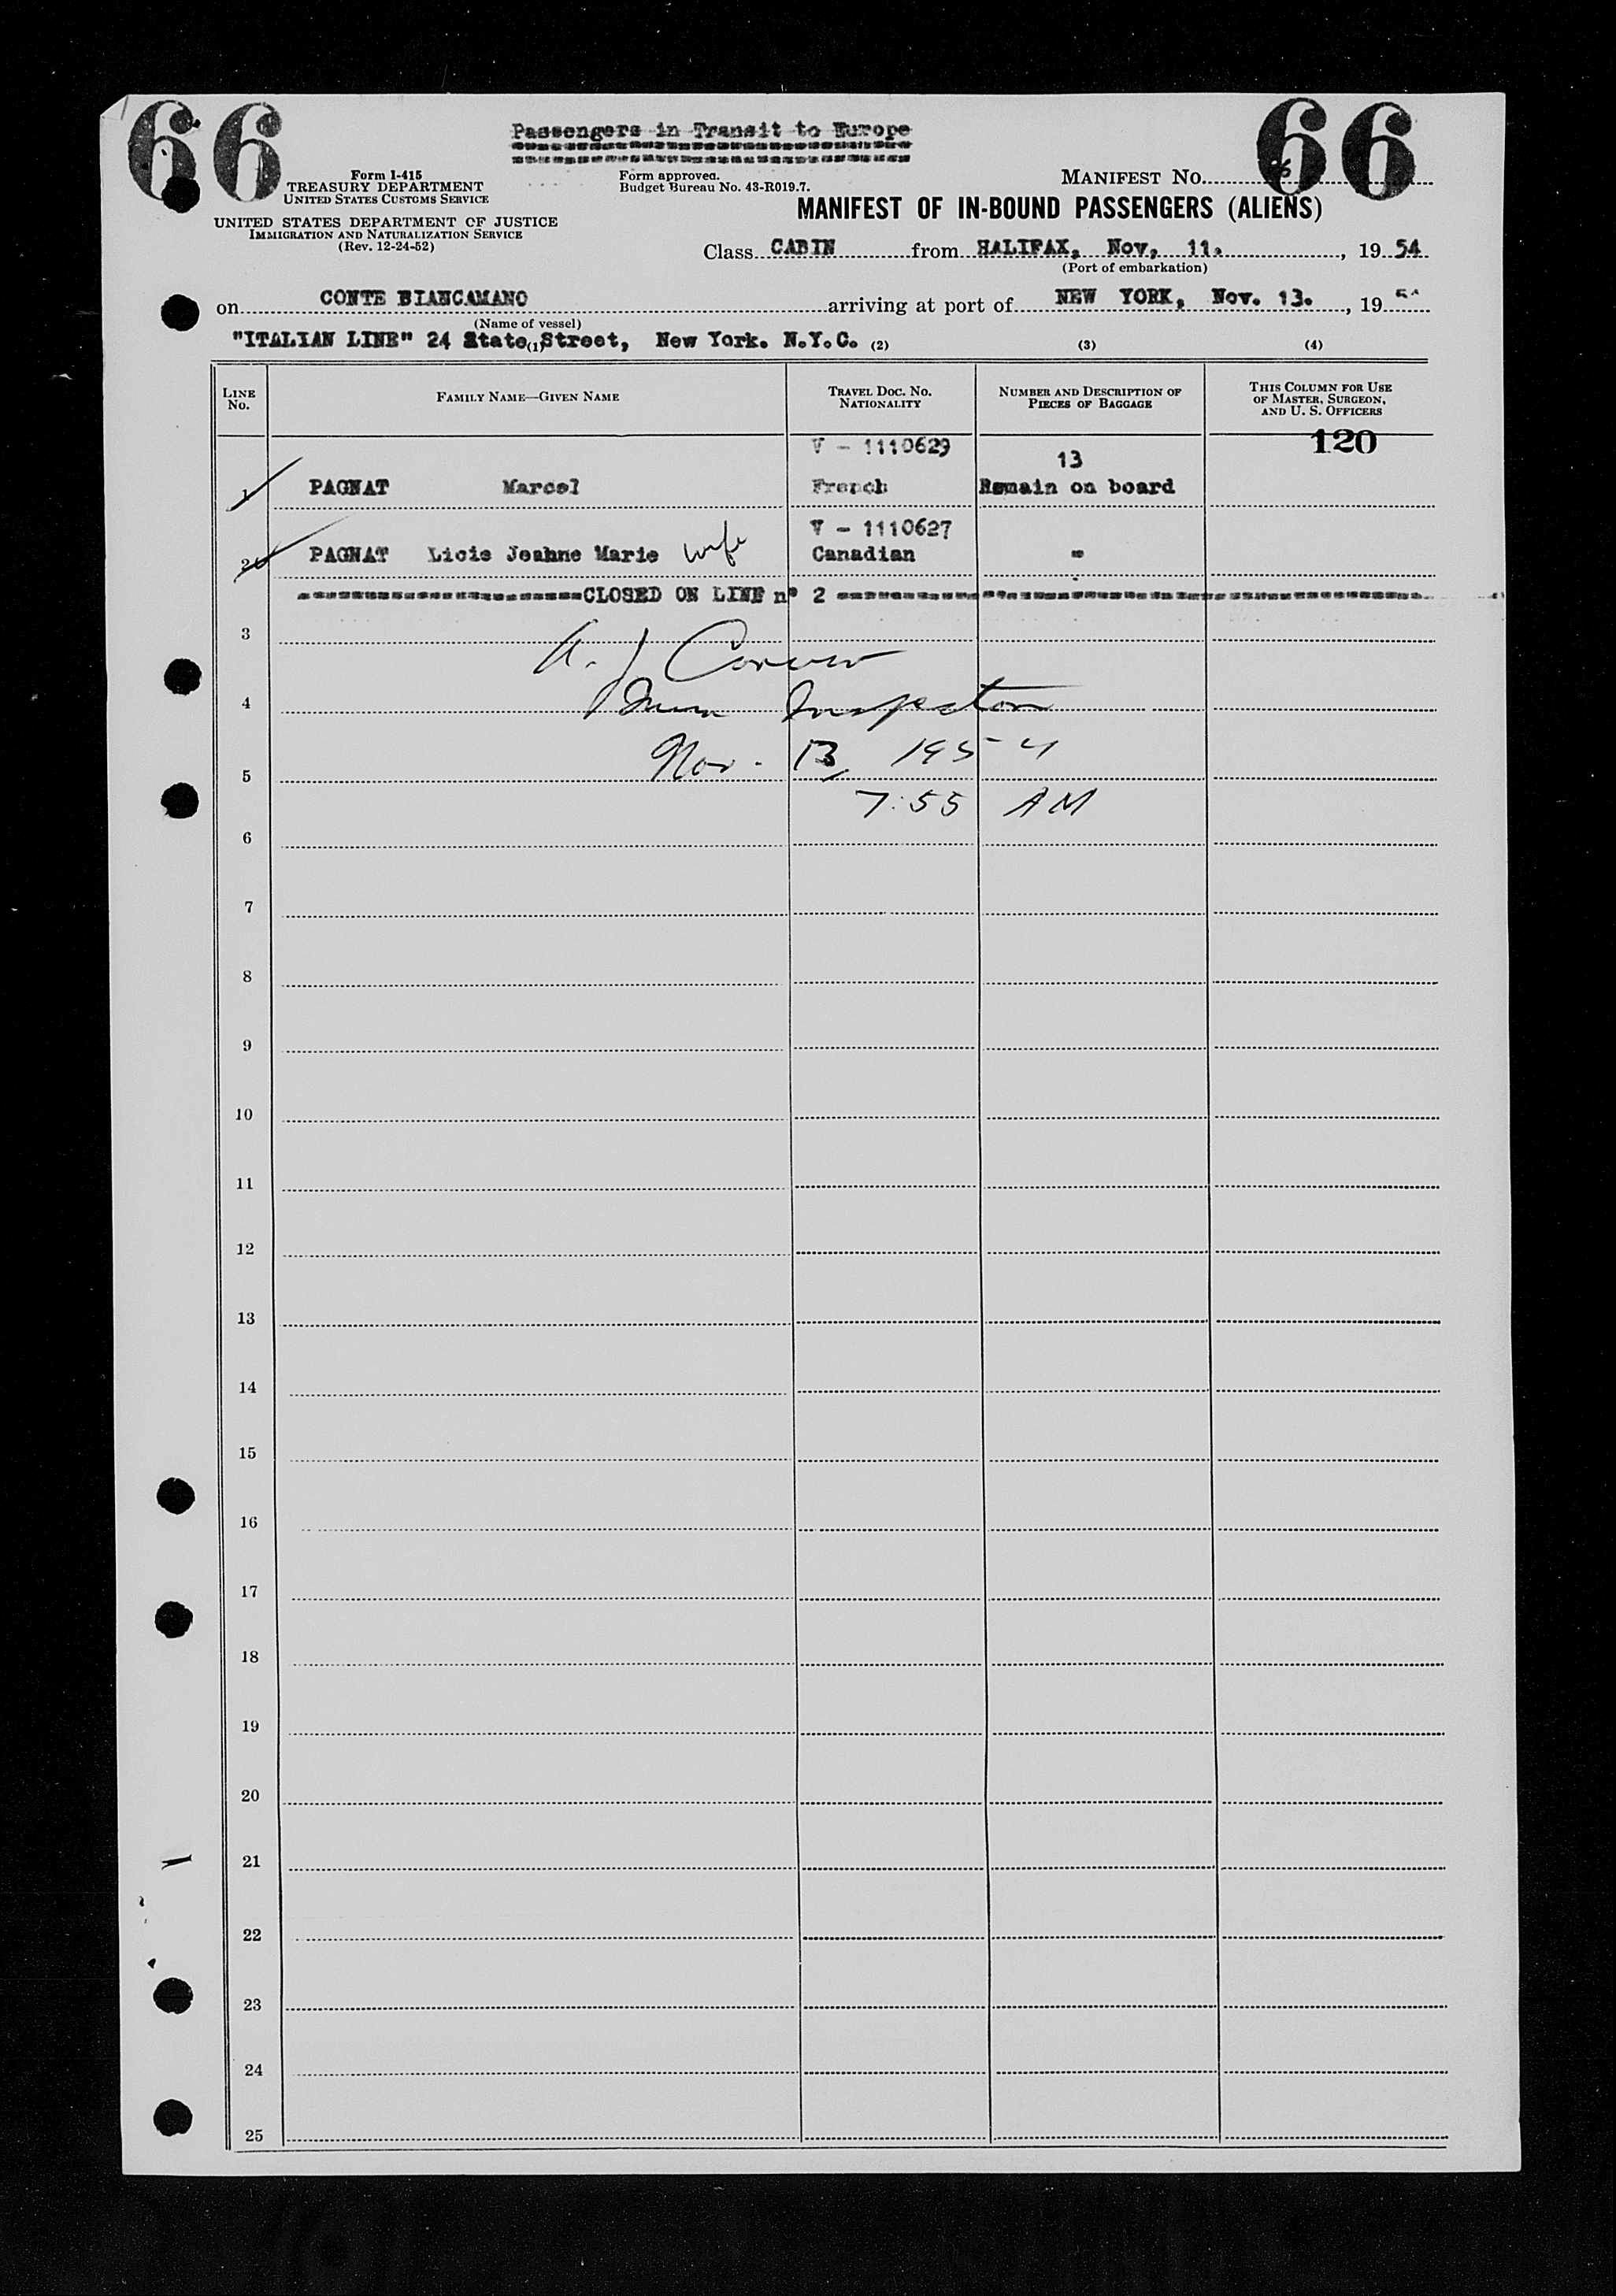 66 66
Passengers in Transit to Europe
Form I-415
TREASURY DEPARTMENT
UNITED STATES CUSTOMS SERVICE
Form approved.
Budget Bureau No. 43-R019.7.
MANIFEST NO.
UNITED STATES DEPARTMENT OF JUSTICE
IMMIGRATION AND NATURALIZATION SERVICE
(Rev. 12-24-52)
MANIFEST OF IN-BOUND PASSENGERS (ALIENS)
Class CABIN from HALIFAX, Nov, 11. , 19 54
(Port of embarkation)
on CONTE BIANCAMANO arriving at port of NEW YORK, Nov. 13. , 19
(Name of vessel)
"ITALIAN LINE" 24 State Street, New York. N.Y.C.
(1) (2) (3) (4)
LINE NO. FAMILY NAME—GIVEN NAME TRAVEL DOC. NO. NATIONALITY NUMBER AND DESCRIPTION OF PIECES OF BAGGAGE THIS COLUMN FOR USE OF MASTER, SURGEON, AND U. S. OFFICERS
120
V - 1110629 13
1 PAGNAT Marcel French Remain on board
V - 1110627
2 PAGNAT Licie Jeahne Marie wife Canadian "
CLOSED ON LINE n° 2
3
A. J
4
Imm Inspector
Nov. 13, 1954
5
7:55 AM
6
7
8
9
10
11
12
13
14
15
16
17
18
19
20
21
22
23
24
25